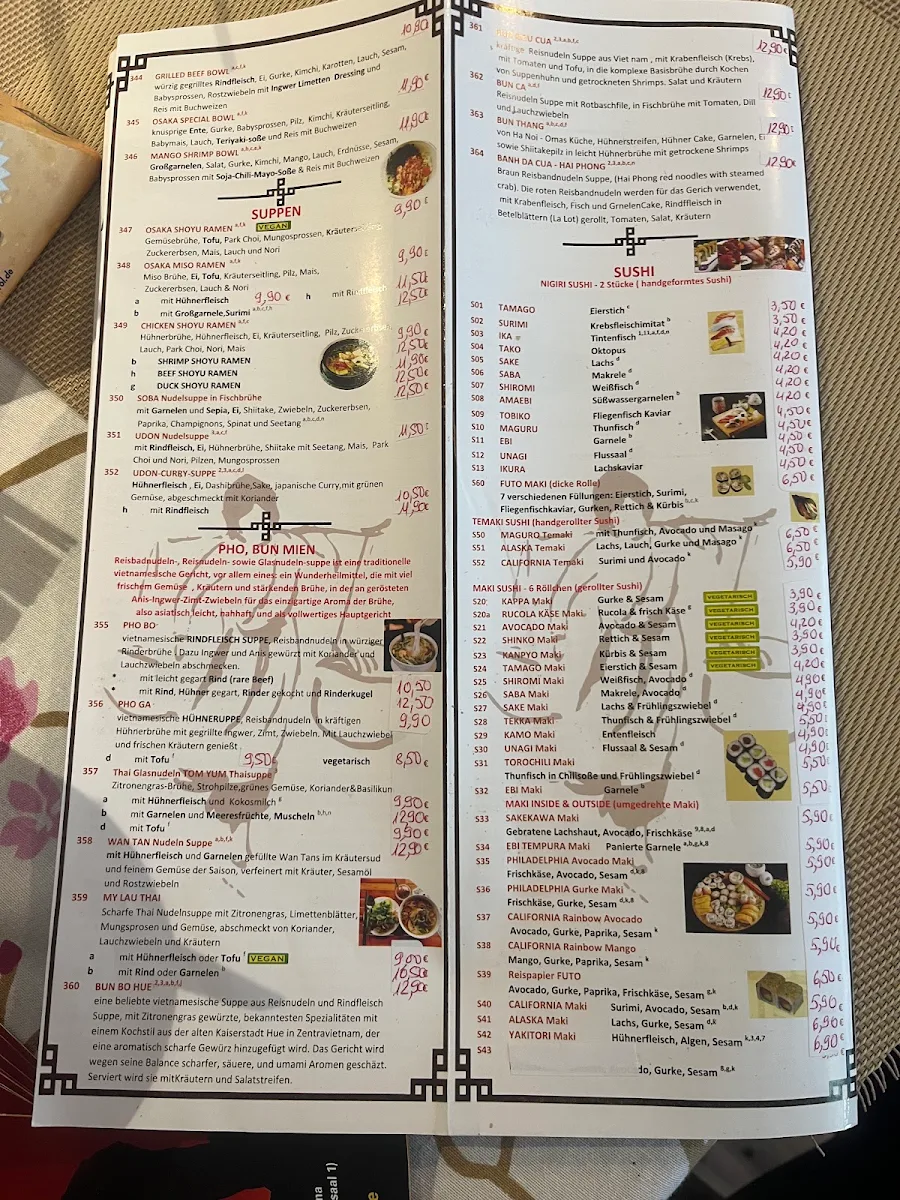 10,90
344 GRILLED BEEF BOWL a,c,f,k
würzig gegrilltes Rindfleisch, Ei, Gurke, Kimchi, Karotten, Lauch, Sesam,
Babysprossen, Rostzwiebeln mit Ingwer Limetten Dressing und
Reis mit Buchweizen
11,90€
345 OSAKA SPECIAL BOWL a,f,k
knusprige Ente, Gurke, Babysprossen, Pilz, Kimchi, Kräuterseitling,
Babymais, Lauch, Teriyaki-soße und Reis mit Buchweizen
11,90€
346 MANGO SHRIMP BOWL
Großgarnelen, Salat, Gurke, Kimchi, Mango, Lauch, Erdnüsse, Sesam,
Babysprossen mit Soja-Chili-Mayo-Soße & Reis mit Buchweizen
SUPPEN
9,90€
347 OSAKA SHOYU RAMEN a,f,k VEGAN
Gemüsebrühe, Tofu, Park Choi, Mungosprossen,
Zuckererbsen, Mais, Lauch und Nori
348 OSAKA MISO RAMEN a,f,k 9,90€
Miso Brühe, Ei, Tofu, Kräuterseitling, Pilz, Mais,
Zuckererbsen, Lauch & Nori
a mit Hühnerfleisch 9,90 € h mit Rindfleisch 11,50€
b mit Großgarnele,Surimi 12,50€
349 CHICKEN SHOYU RAMEN 9,90€
Hühnerbrühe, Hühnerfleisch, Ei, Kräuterseitling, Pilz,
Lauch, Park Choi, Nori, Mais
b SHRIMP SHOYU RAMEN 12,50€
h BEEF SHOYU RAMEN 11,90€
g DUCK SHOYU RAMEN 12,50€
350 SOBA Nudelsuppe in Fischbrühe 12,50€
mit Garnelen und Sepia, Ei, Shiitake, Zwiebeln, Zuckererbsen,
Paprika, Champignons, Spinat und Seetang a,b,c,d,n
351 UDON Nudelsuppe 3,a,c,f 11,50€
mit Rindfleisch, Ei, Hühnerbrühe, Shiitake mit Seetang, Mais, Park
Choi und Nori, Pilzen, Mungosprossen
352 UDON-CURRY-SUPPE 2,3,a,c,d,f
Hühnerfleisch , Ei, Dashibrühe,Sake, japanische Curry,mit grünen
Gemüse, abgeschmeckt mit Koriander 10,50€
h mit Rindfleisch 11,90€
PHO, BUN MIEN
Reisbadnudeln-, Reisnudeln- sowie Glasnudeln-suppe ist eine traditionelle
vietnamesische Gericht, vor allem eines ein Wunderheilmittel, die mit viel
frischem Gemüse , Kräutern und stärkenden Brühe, in der an gerösteten
Anis-Ingwer-Zimt-Zwiebeln für das einzigartige Aroma der Brühe,
also asiatisch leicht, hahhaft und als vollwertiges Hauptgericht
355 PHO BO-
vietnamesische RINDFLEISCH SUPPE, Reisbandnudeln in würziger
Rinderbrühe . Dazu Ingwer und Anis gewürzt mit Koriander und
Lauchzwiebeln abschmecken.
• mit leicht gegart Rind (rare Beef) 10,50
• mit Rind, Hühner gegart, Rinder gekocht und Rinderkugel 12,50
356 PHO GA- 9,90
vietnamesische HÜHNERUPPE, Reisbandnudeln in kräftigen
Hühnerbrühe mit gegrillte Ingwer, Zimt, Zwiebeln. Mit Lauchzwiebel
und frischen Kräutern genießt .
d mit Tofu f 9,50€ vegetarisch 8,50€
357 Thai Glasnudeln TOM YUM Thaisuppe
Zitronengras-Brühe, Strohpilze,grünes Gemüse, Koriander&Basilikun
a mit Hühnerfleisch und Kokosmilch g 9,90€
b mit Garnelen und Meeresfrüchte, Muscheln b,h,n 12,90€
d mit Tofu f 9,90€
358 WAN TAN Nudeln Suppe a,b,f,k 12,90€
mit Hühnerfleisch und Garnelen gefüllte Wan Tans im Kräutersud
und feinem Gemüse der Saison, verfeinert mit Kräuter, Sesamöl
und Rostzwiebeln
359 MY LAU THAI
Scharfe Thai Nudelnsuppe mit Zitronengras, Limettenblätter,
Mungsprosen und Gemüse, abschmeckt von Koriander,
Lauchzwiebeln und Kräutern
a mit Hühnerfleisch oder Tofu f VEGAN 9,00€
b mit Rind oder Garnelen b 10,50€
360 BUN BO HUE 2,3,a,b,f,j 12,90€
eine beliebte vietnamesische Suppe aus Reisnudeln und Rindfleisch
Suppe, mit Zitronengras gewürzte, bekanntesten Spezialitäten mit
einem Kochstil aus der alten Kaiserstadt Hue in Zentravietnam, der
eine aromatisch scharfe Gewürz hinzugefügt wird. Das Gericht wird
wegen seine Balance scharfer, säuere, und umami Aromen geschäzt.
Serviert wird sie mitKräutern und Salatstreifen.
361 CUA 12,90€
kräftige Reisnudeln Suppe aus Viet nam , mit Krabenfleisch (Krebs),
mit Tomaten und Tofu, in die komplexe Basisbrühe durch Kochen
von Suppenhuhn und getrockneten Shrimps. Salat und Kräutern
362 BUN CA a,d,f 12,90€
Reisnudeln Suppe mit Rotbaschfile, in Fischbrühe mit Tomaten, Dill
und Lauchzwiebeln
363 BUN THANG a,b,c,d,f 12,90€
von Ha Noi - Omas Küche, Hühnerstreifen, Hühner Cake, Garnelen, Ei
sowie Shiitakepilz in leicht Hühnerbrühe mit getrockene Shrimps
364 BANH DA CUA - HAI PHONG 2,3,a,b,c,n 12,90€
Braun Reisbandnudeln Suppe, (Hai Phong red noodles with steamed
crab). Die roten Reisbandnudeln werden für das Gerich verwendet,
mit Krabenfleisch, Fisch und GrnelenCake, Rindfleisch in
Betelblättern (La Lot) gerollt, Tomaten, Salat, Kräutern
SUSHI
NIGIRI SUSHI - 2 Stücke ( handgeformtes Sushi)
S01 TAMAGO Eierstich c 3,50 €
S02 SURIMI Krebsfleischimitat b 3,50 €
S03 IKA Tintenfisch 1,11,a,f,d,n 4,20 €
S04 TAKO Oktopus 4,20 €
S05 SAKE Lachs d 4,20 €
S06 SABA Makrele d 4,20 €
S07 SHIROMI Weißfisch d 4,20 €
S08 AMAEBI Süßwassergarnelen b 4,20 €
S09 TOBIKO Fliegenfisch Kaviar 4,50€
S10 MAGURU Thunfisch d 4,50€
S11 EBI Garnele b 4,50 €
S12 UNAGI Flussaal d 4,50€
S13 IKURA Lachskaviar 4,50€
S60 FUTO MAKI (dicke Rolle) 6,50€
7 verschiedenen Füllungen: Eierstich, Surimi,
Fliegenfischkaviar, Gurken, Rettich & Kürbis b,c,k
TEMAKI SUSHI (handgerollter Sushi)
S50 MAGURO Temaki mit Thunfisch, Avocado und Masago 6,50€
S51 ALASKA Temaki Lachs, Lauch, Gurke und Masago k 6,50 €
S52 CALIFORNIA Temaki Surimi und Avocado k 5,90€
MAKI SUSHI - 6 Röllchen (gerollter Sushi)
S20 KAPPA Maki Gurke & Sesam VEGETARISCH 3,90€
S20a RUCOLA KÄSE Maki Rucola & frisch Käse g VEGETARISCH 3,90€
S21 AVOCADO Maki Avocado & Sesam VEGETARISCH 4,20€
S22 SHINKO Maki Rettich & Sesam VEGETARISCH 3,90€
S23 KANPYO Maki Kürbis & Sesam VEGETARISCH 3,90€
S24 TAMAGO Maki Eierstich & Sesam VEGETARISCH 4,20€
S25 SHIROMI Maki Weißfisch, Avocado d 4,90€
S26 SABA Maki Makrele, Avocado d 4,90€
S27 SAKE Maki Lachs & Frühlingszwiebel d 4,90€
S28 TEKKA Maki Thunfisch & Frühlingszwiebel d 5,50€
S29 KAMO Maki Entenfleisch 4,90€
S30 UNAGI Maki Flussaal & Sesam d 4,90€
S31 TOROCHILI Maki 5,50€
Thunfisch in Chilisoße und Frühlingszwiebel d
S32 EBI Maki Garnele b 5,50€
MAKI INSIDE & OUTSIDE (umgedrehte Maki)
S33 SAKEKAWA Maki 5,90€
Gebratene Lachshaut, Avocado, Frischkäse 9,8,a,d
S34 EBI TEMPURA Maki Panierte Garnele a,b,g,k,8 5,90€
S35 PHILADELPHIA Avocado Maki 5,90€
Frischkäse, Avocado, Sesam d,k,8
S36 PHILADELPHIA Gurke Maki 5,90€
Frischkäse, Gurke, Sesam d,k,8
S37 CALIFORNIA Rainbow Avocado 5,90€
Avocado, Gurke, Paprika, Sesam k
S38 CALIFORNIA Rainbow Mango 5,90€
Mango, Gurke, Paprika, Sesam k
S39 Reispapier FUTO 6,50€
Avocado, Gurke, Paprika, Frischkäse, Sesam g,k
S40 CALIFORNIA Maki Surimi, Avocado, Sesam b,d,k 5,90€
S41 ALASKA Maki Lachs, Gurke, Sesam d,k 6,90€
S42 YAKITORI Maki Hühnerfleisch, Algen, Sesam k,3,4,7 6,90€
S43
do, Gurke, Sesam 8,g,k
ol.de
saal 1)